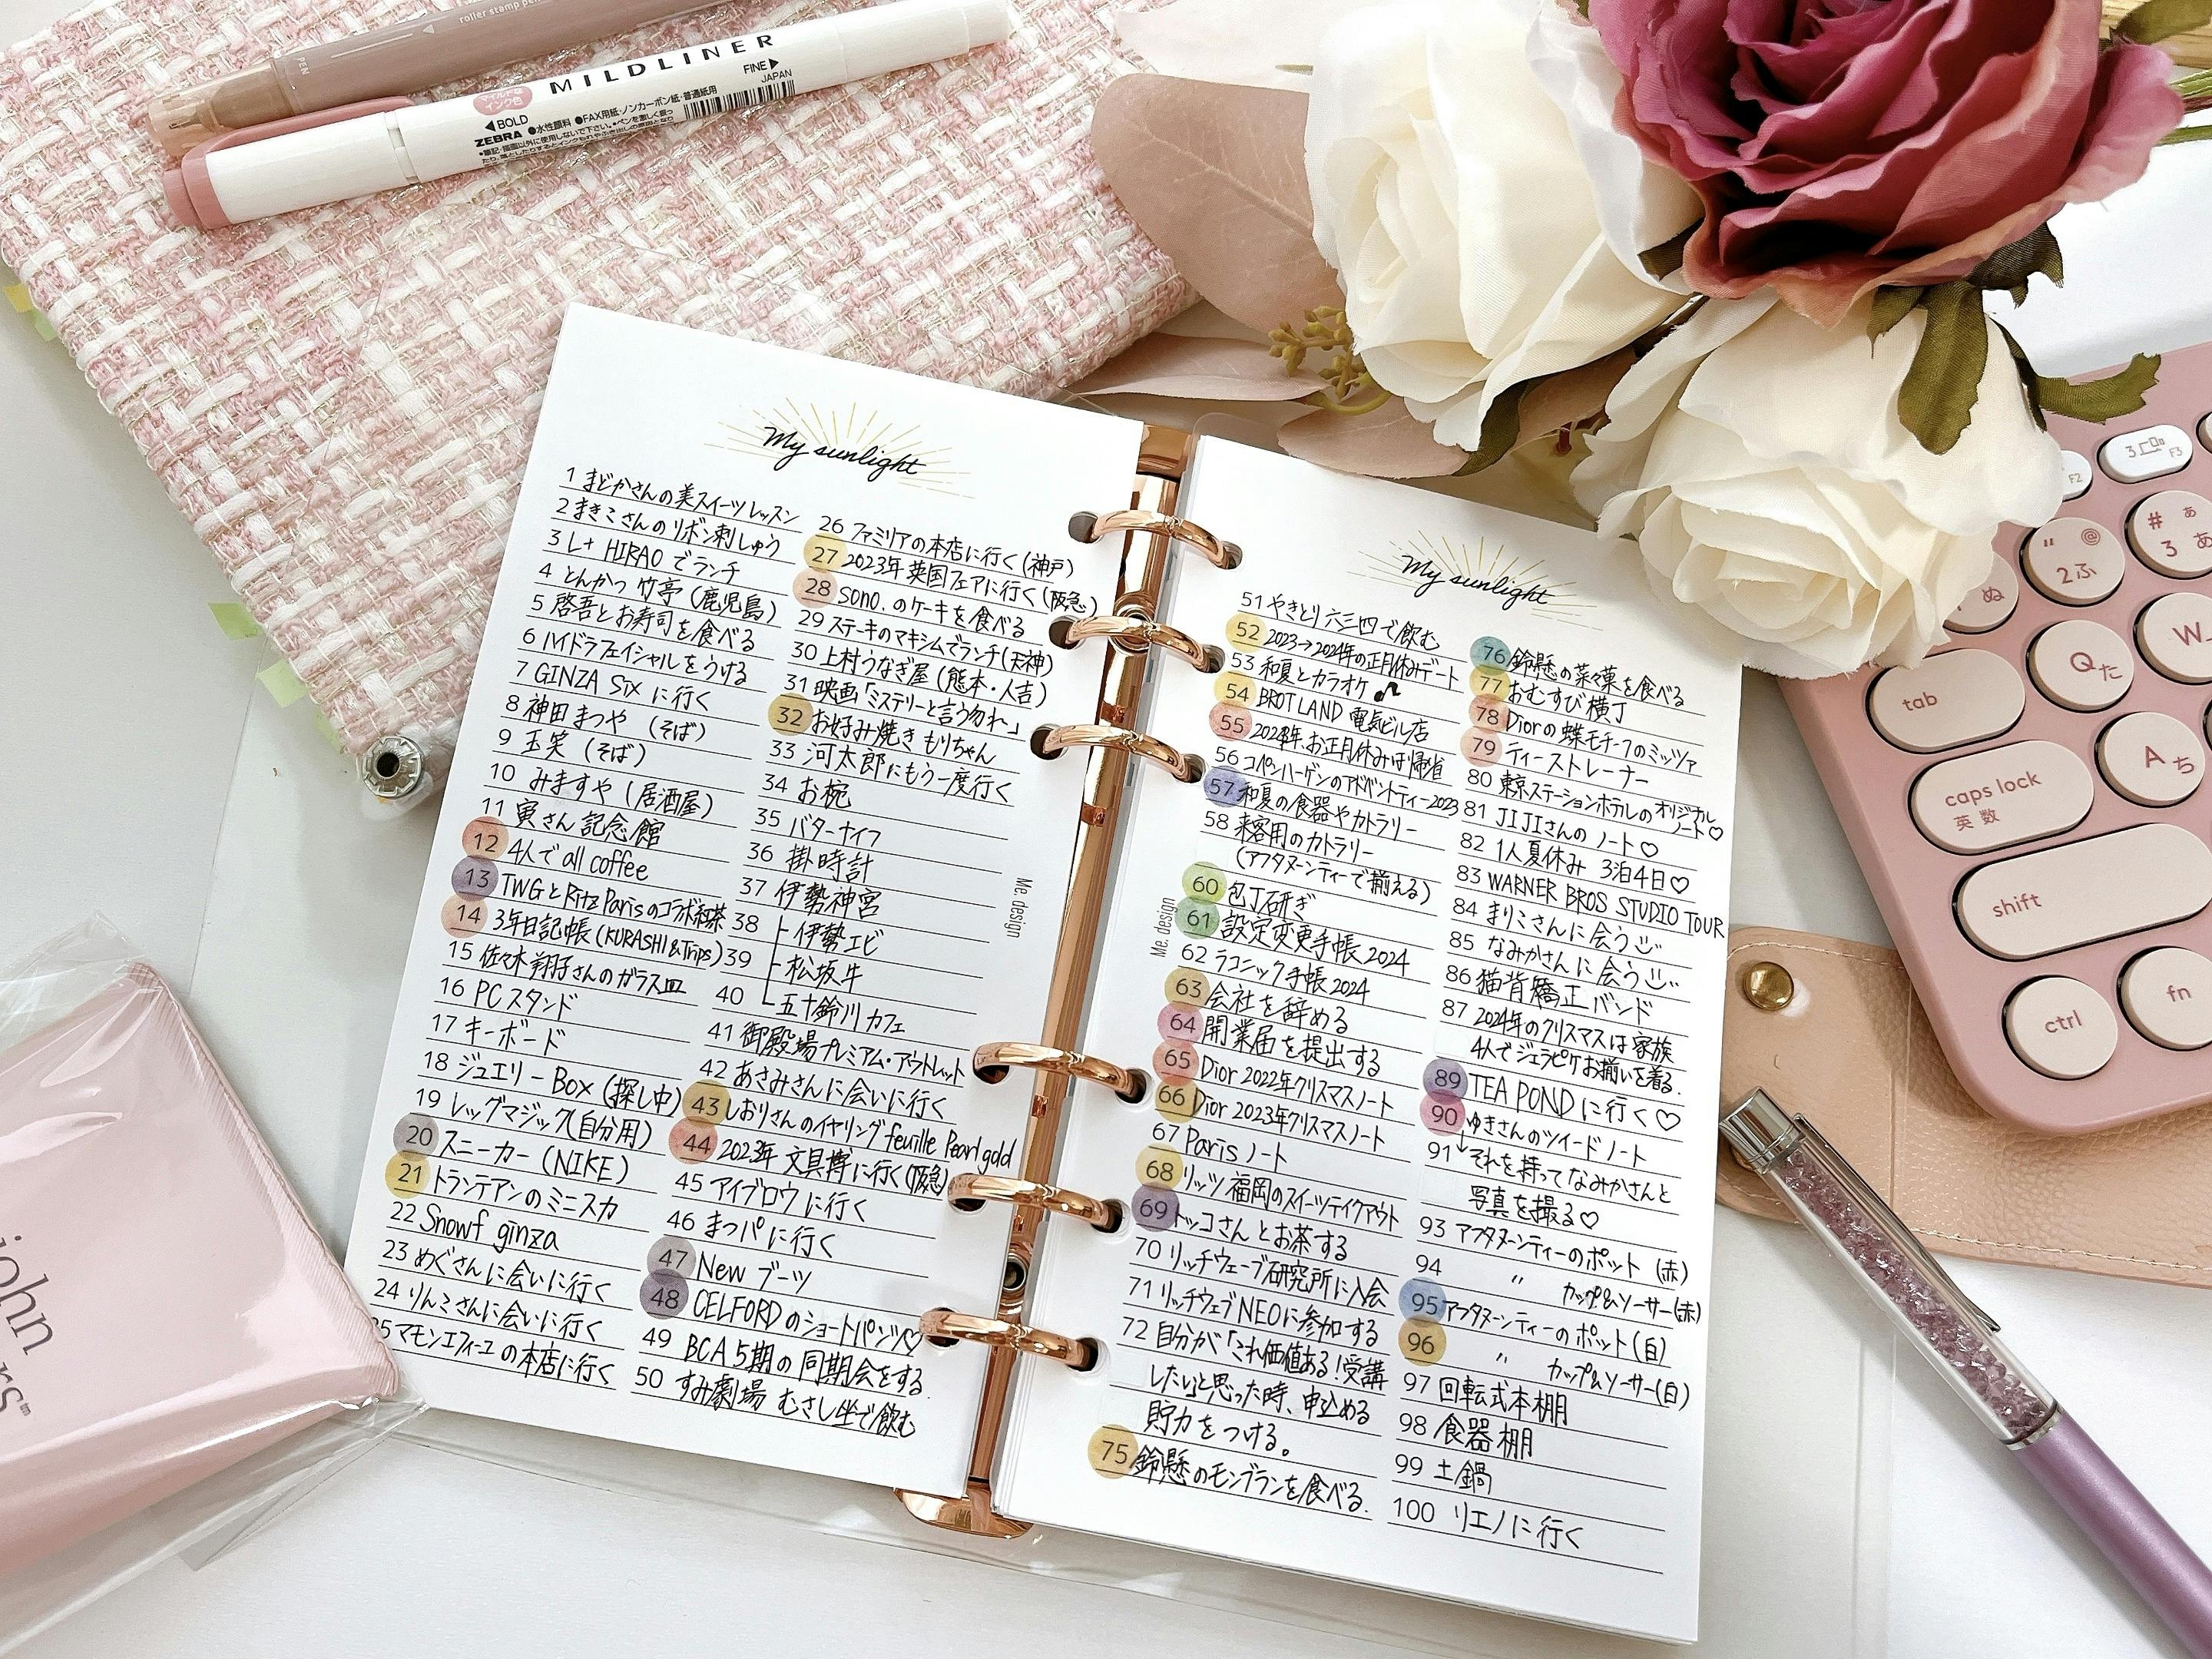 roller stamp pen
PEN
MILDLINER
マイルドな
インク色
FINE▶
JAPAN
◀BOLD
ZEBRA ●水性顔料 ●FAX用紙・ノンカーボン紙・普通紙用
My sunlight
1 まどかさんの美スイーツレッスン
2 まきこさんのリボン刺しゅう
3 L+ HIRAO でランチ
4 とんかつ 竹亭 (鹿児島)
5 啓吾とお寿司を食べる
6 ハイドラフェイシャルをうける
7 GINZA SIX に行く
8 神田 まつや (そば)
9 玉笑 (そば)
10 みますや (居酒屋)
11 寅さん記念館
12 4人で all coffee
13 TWGとRitz Parisのコラボ紅茶
14 3年日記帳 (KURASHI&Trips)
15 佐々木翔子さんのガラス皿
16 PCスタンド
17 キーボード
18 ジュエリーBox (探し中)
19 レッグマジック(自分用)
20 スニーカー (NIKE)
21 トランテアンのミニスカ
22 Snowf ginza
23 めぐさんに会いに行く
24 りんこさんに会いに行く
25 マモンエフィーユの本店に行く
26 ファミリアの本店に行く(神戸)
27 2023年英国フェアに行く(阪急)
28 sono. のケーキを食べる
29 ステーキのマキシムでランチ(天神)
30 上村うなぎ屋 (熊本・人吉)
31 映画「ミステリーと言う勿れ」
32 お好み焼き もりちゃん
33 河太郎にもう一度行く
34 お椀
35 バターナイフ
36 掛時計
37 伊勢神宮
38 伊勢エビ
39 松坂牛
40 五十鈴川カフェ
41 御殿場プレミアム・アウトレット
42 あさみさんに会いに行く
43 しおりさんのイヤリング feuille Pearl gold
44 2023年 文具博に行く(阪急)
45 アイブロウに行く
46 まつパに行く
47 New ブーツ
48 CELFORDのショートパンツ♡
49 BCA5期の同期会をする.
50 すみ劇場 むさし坐で飲む
Me. design
My sunlight
51 やきとり六三四で飲む
52 2023→2024年の正月休みデート
53 和夏とカラオケ♪
54 BROT LAND 電気ビル店
55 2024年お正月休みは帰省
56 コペンハーゲンのアドベントティー2023
57 和夏の食器やカトラリー
58 来客用のカトラリー
(アフタヌーンティーで揃える)
60 包丁研ぎ
61 設定変更手帳2024
62 ラコニック手帳2024
63 会社を辞める
64 開業届を提出する
65 Dior 2022年クリスマスノート
66 Dior 2023年クリスマスノート
67 Paris ノート
68 リッツ福岡のスイーツテイクアウト
69 トッコさんとお茶する
70 リッチウェーブ研究所に入会
71 リッチウェブNEOに参加する
72 自分が「これ価値ある！受講
したい」と思った時、申込める
貯力をつける。
75 鈴懸のモンブランを食べる.
76 鈴懸の菜々菓を食べる
77 おむすび横丁
78 Diorの蝶モチーフのミッツァ
79 ティーストレーナー
80 東京ステーションホテルのオリジナル
ノート♡
81 JIJIさんのノート♡
82 1人夏休み 3泊4日♡
83 WARNER BROS STUDIO TOUR
84 まりこさんに会う
85 なみかさんに会う
86 猫背矯正バンド
87 2024年のクリスマスは家族
4人でジェラピケお揃いを着る.
89 TEA PONDに行く♡
90 ゆきさんのツイードノート
91 ↓それを持ってなみかさんと
写真を撮る♡
93 アフタヌーンティーのポット (赤)
94 〃 カップ&ソーサー(赤)
95 アフタヌーンティーのポット (白)
96 〃 カップ&ソーサー(白)
97 回転式本棚
98 食器棚
99 土鍋
100 リエノに行く
Me. design
F2
3 F3
ぬ
" @
2 ふ
# ぁ
3 あ
tab
Q た
W
caps lock
英数
A ち
shift
ctrl
fn
john